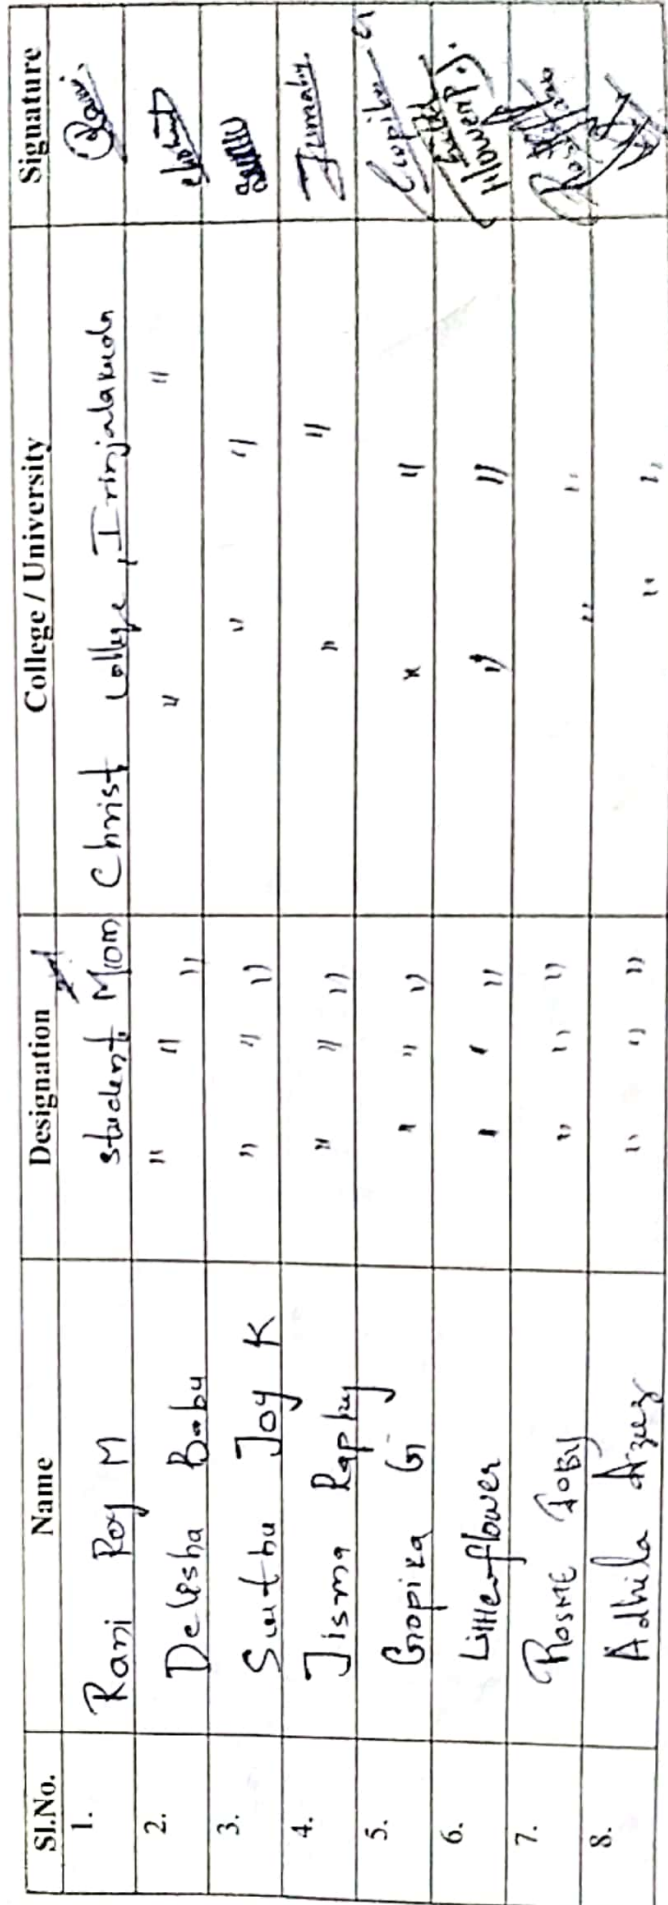 Sl.No. Name Designation College / University Signature
1. Rani Roy M Student M.com Christ College, Irinjalakuda Rani
2. Delisha Babu " " " " "
3. Joy K " " " " "
4. Jisma Raphy " " " " "
5. Gopika G " " " " " Gopika G
6. Littleflower " " " " " Flower P.J.
7. ROSME JOBY " " " " "
8. Adhila Azeez " " " " "